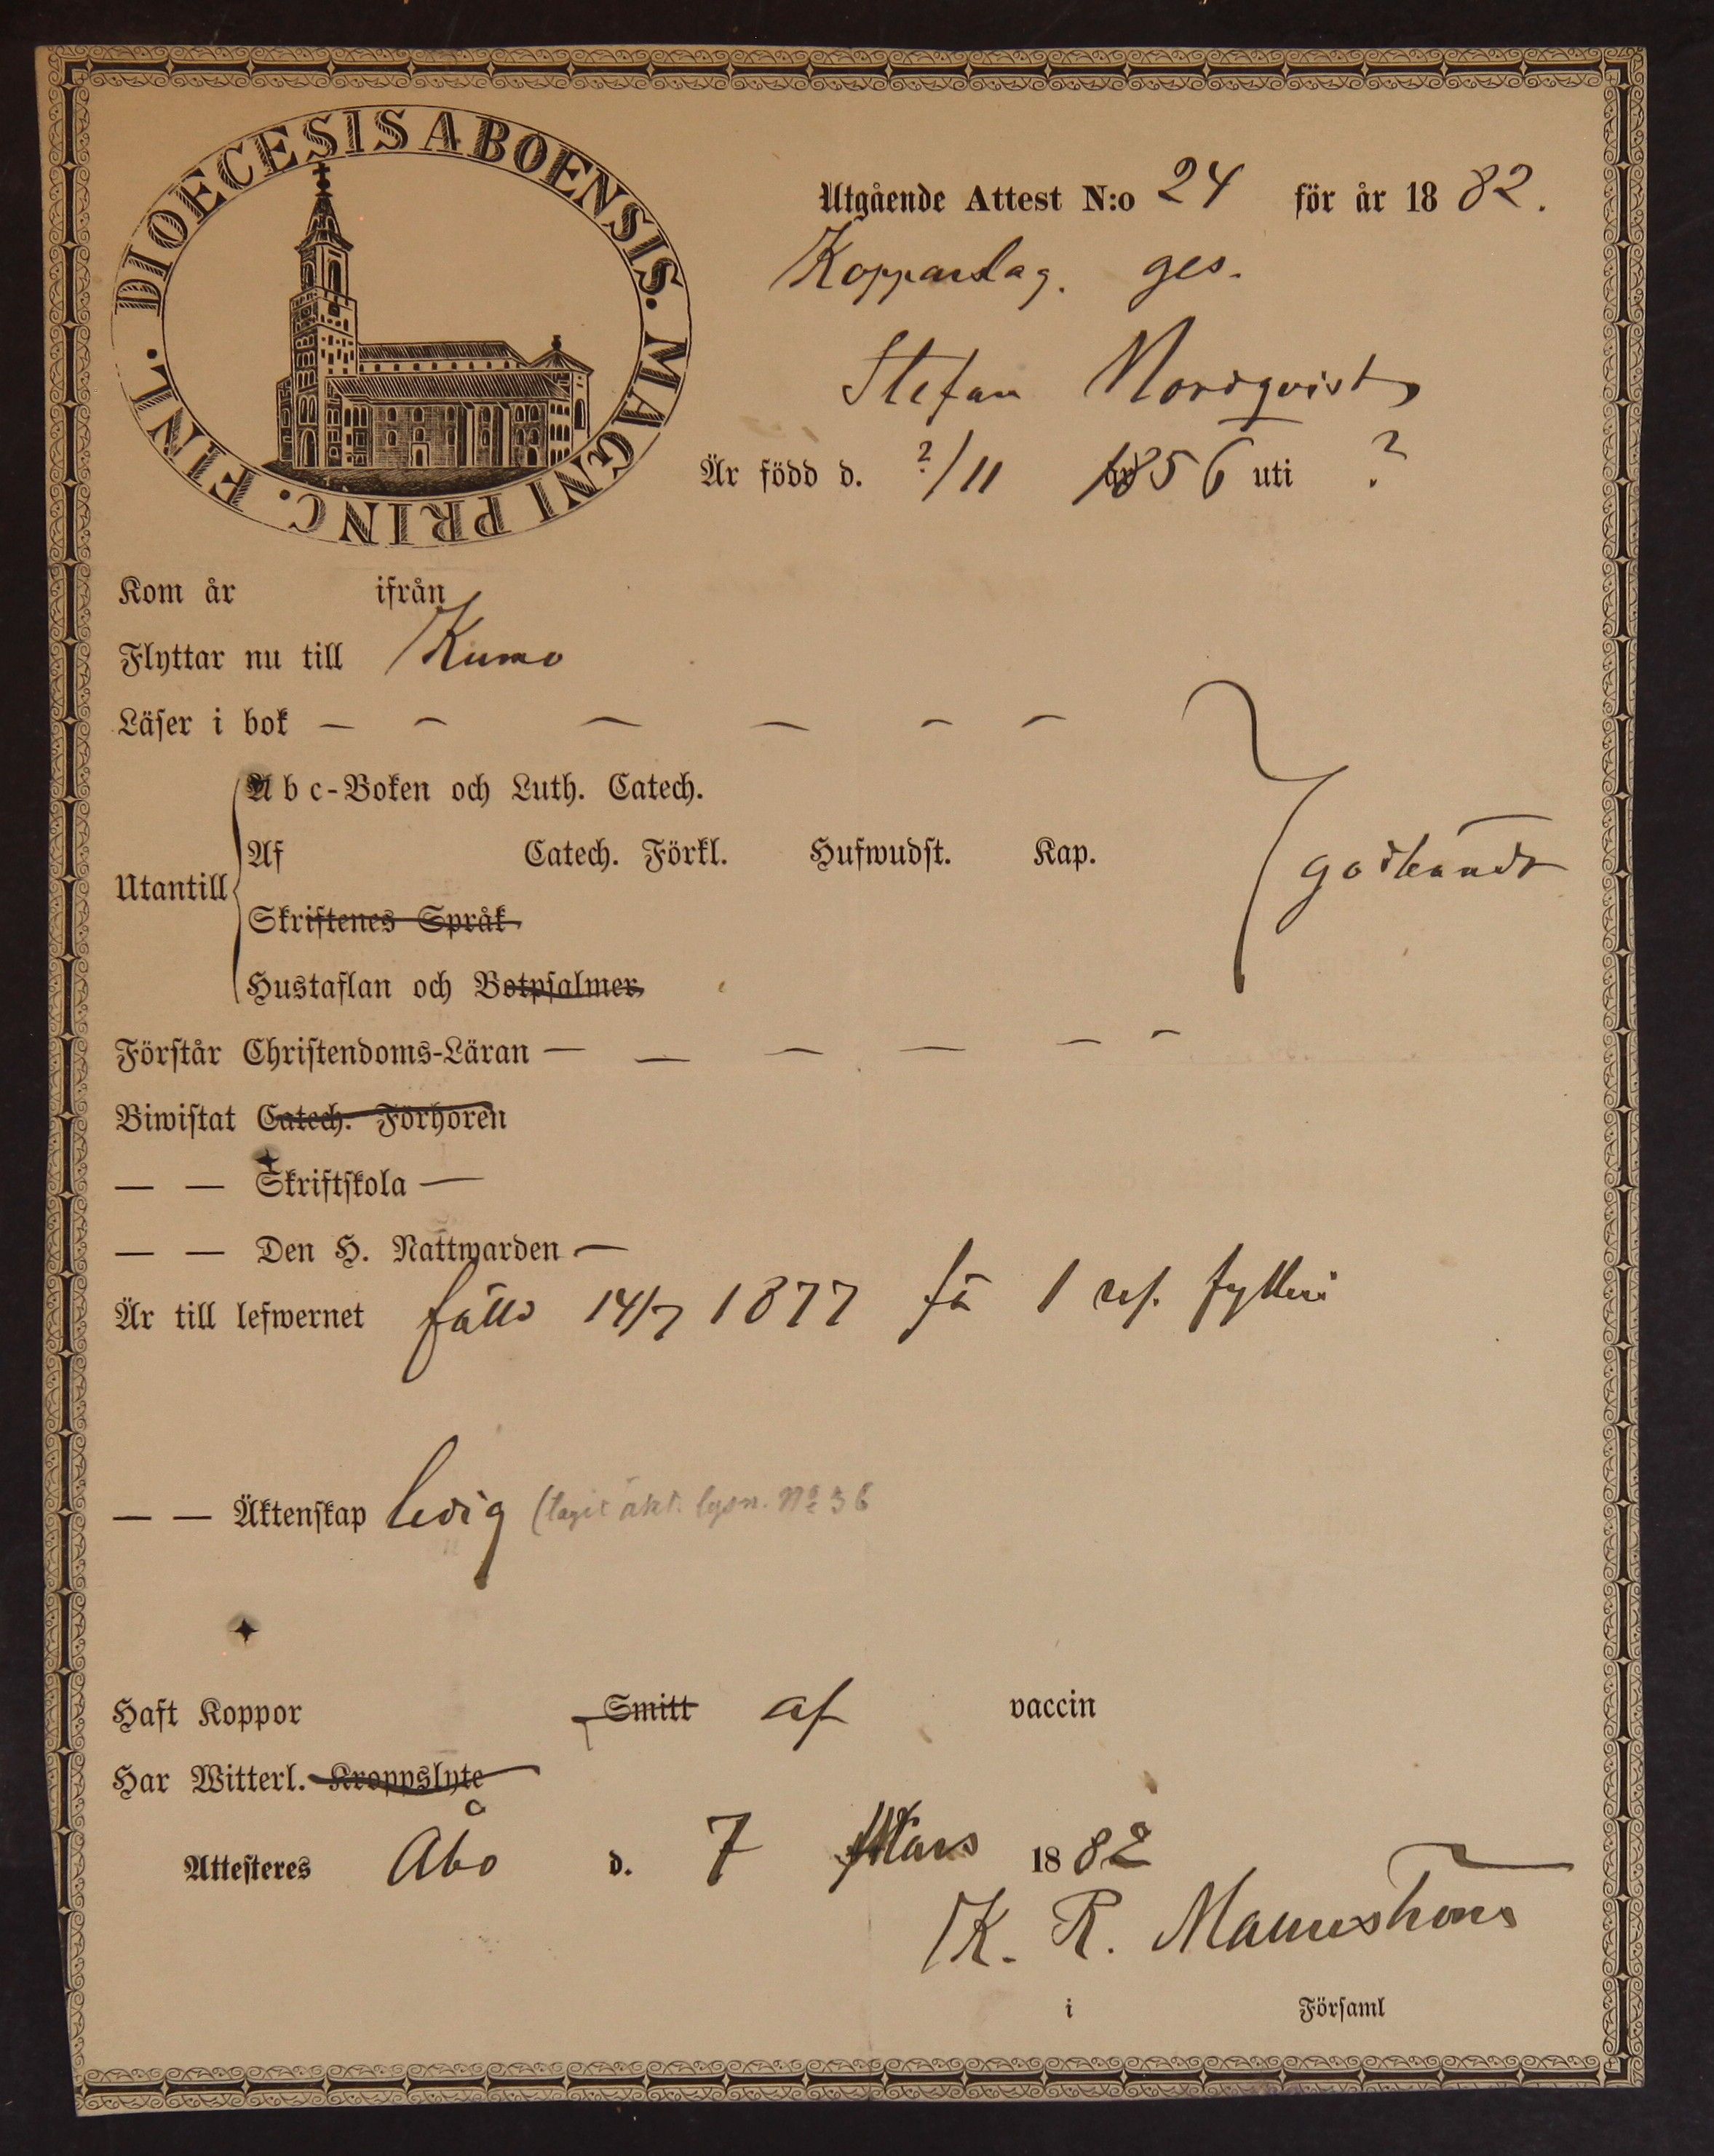 DIOECESIS ABOENSIS. MAGNI PRINC. FINL.
Utgående Attest N:o 24 för år 1882.
Kopparslag. ges.
Stefan Nordqvist
Är född d. ?/11 1856 uti ?
Kom år ifrån
Flyttar nu till Kumo
Läser i bok — — — — — —
Abc-Boken och Luth. Catech.
Af Catech. Förkl. Hufwudst. Kap. godkändt
Utantill
Skriftenes Språk
Hustaflan och Botpsalmer
Förstår Christendoms-Läran — — — — — —
Biwistat Catech. Förhören
— — Skriftskola —
— — Den H. Nattwarden —
Är till lefwernet fälld 14/7 1877 fö 1 res. fylleri
— — Äktenskap ledig (tagit äkt. lysn. No 36
Haft Koppor Smitt af vaccin
Har Witterl. Kroppslyte
Attesteres Åbo d. 7 Mars 1882
K. R. Malmström
i Församl